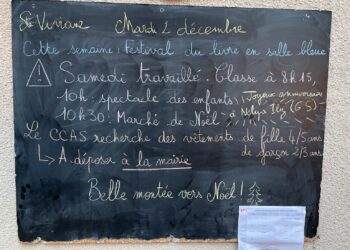 Ste Viviane Mardi 2 décembre
Cette semaine : Festival du livre en salle bleue
Samedi travaillé : Classe à 8h15,
10h : spectacle des enfants,
10h30 : Marché de Noël
Joyeux anniversaire
à (GS)
Le CCAS recherche des vêtements de fille 4/5 ans
de garçon 2/3 ans
↳ A déposer à la mairie
Belle montée vers Noël !